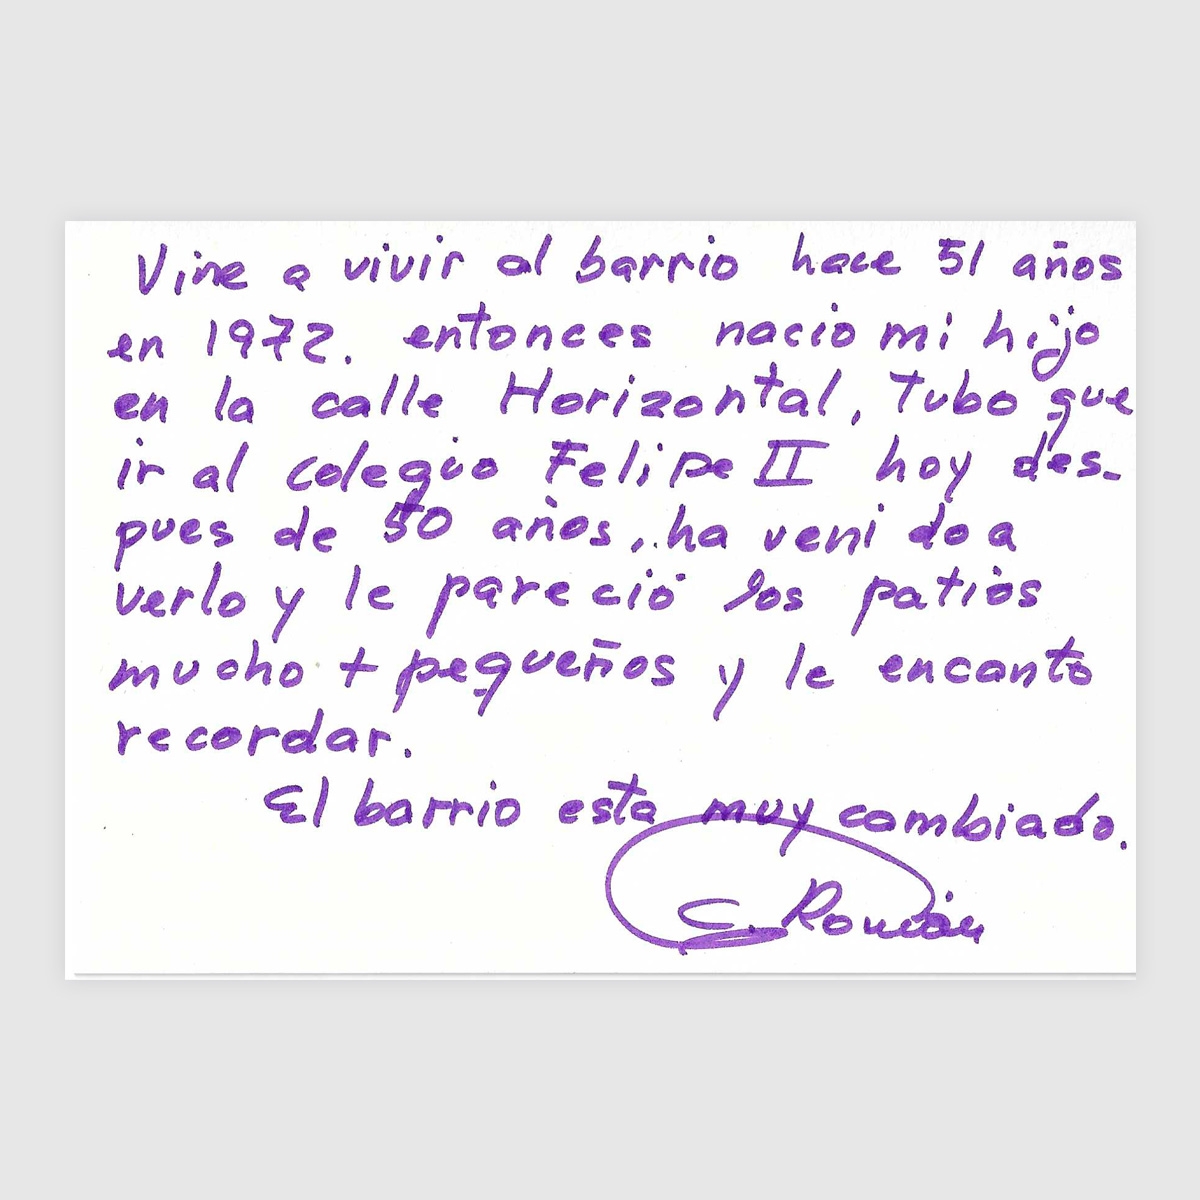 Vine a vivir al barrio hace 51 años
en 1972. entonces nacio mi hijo
en la calle Horizontal, Tubo que
ir al colegio Felipe II hoy des-
pues de 50 años, ha venido a
verlo y le pareció los patios
mucho + pequeños y le encanto
recordar.
El barrio esta muy cambiado.
C. Román